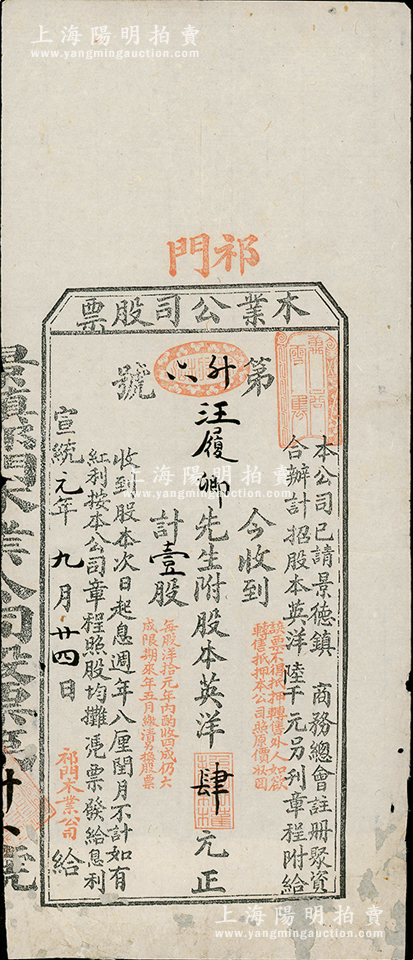 上海陽明拍賣
www.yangmingauction.com
祁門
木業公司股票
本公司已請景德鎮 商務總會註冊聚資
合辦計招股本英洋陸千元另刋章程附給
第 卅六 號
今收到
汪履卿先生附股本英洋 肆 元正
計壹股
該票不得抵押轉售外人如欲
轉售抵押本公司照原價收回
每股洋拾元年內酌收四成仍六
成限期來年五月繳清另換股票
收到股本次日起息週年八厘閏月不計如有
紅利按本公司章程照股均攤凴票發給息利
宣統元年九月廿四日 給
祁門木業公司
上海陽明拍賣
www.yangmingauction.com